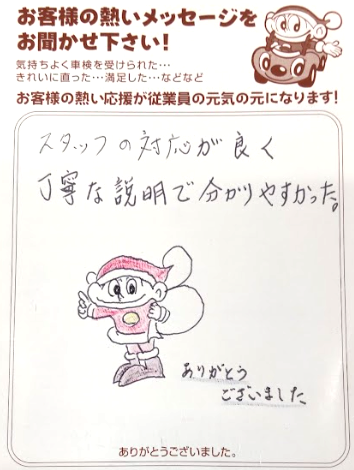 お客様の熱いメッセージを
お聞かせ下さい!
気持ちよく車検を受けられた…
きれいに直った…満足した…などなど
お客様の熱い応援が従業員の元気の元になります!
スタッフの対応が良く
丁寧な説明で分かりやすかった。
ありがとう
ございました
ありがとうございました。